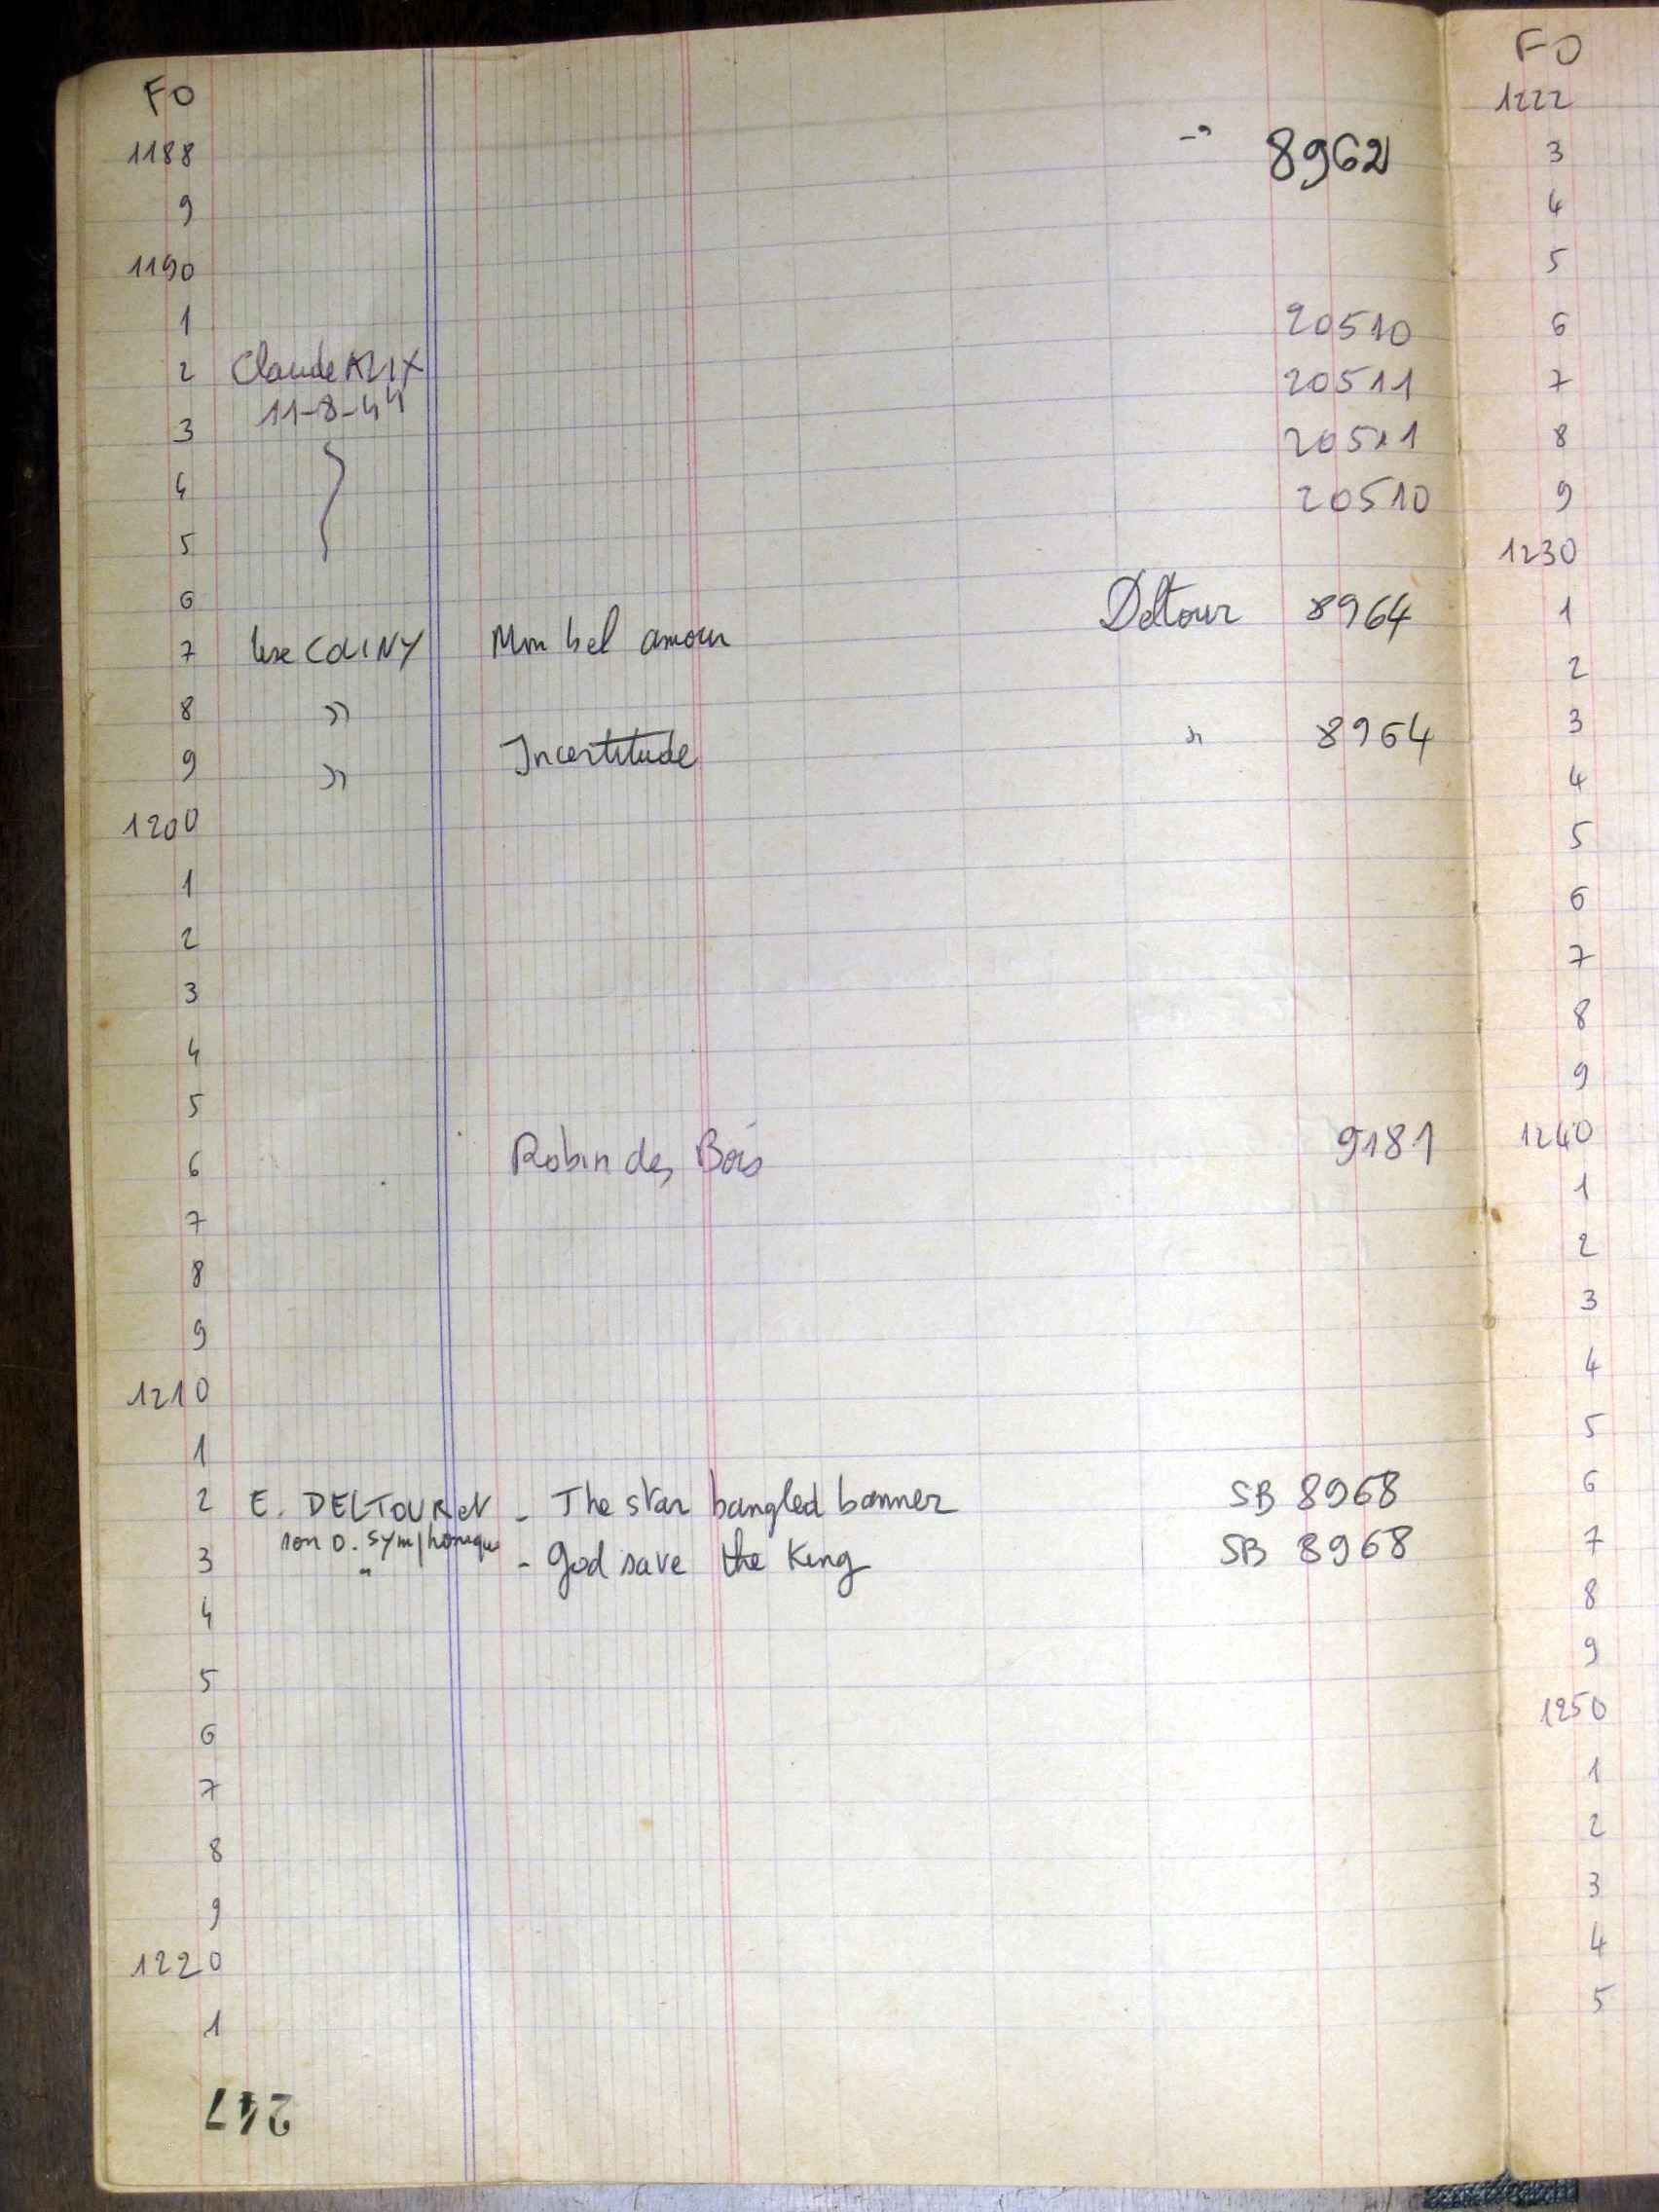 FO
1188 → 8962
9
1190
1 20510
2 Claude ALIX 20511
3 11-8-44 20511
4 20510
5
6
7 COLINY Mon bel amour Deltour 8964
8 "
9 " Incertitude " 8964
1200
1
2
3
4
5
6 Robin des Bois 9181
7
8
9
1210
1
2 E. DELTOUR et - The star bangled banner SB 8968
son O. Symphonique
3 " - God save the King SB 8968
4
5
6
7
8
9
1220
1
247
FO
1222
3
4
5
6
7
8
9
1230
1
2
3
4
5
6
7
8
9
1240
1
2
3
4
5
6
7
8
9
1250
1
2
3
4
5